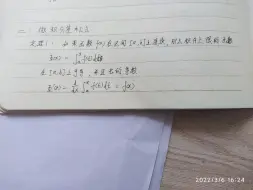 二、微积分基本公式
定理1：如果函数f(x)在区间[a,b]上连续，则积分上限的函数
Φ(x)=∫ₐˣ f(t)dt
在[a,b]上可导，并且它的导数
Φ'(x)=d/dx ∫ₐˣ f(t)dt = f(x)
2022/3/6 16:24